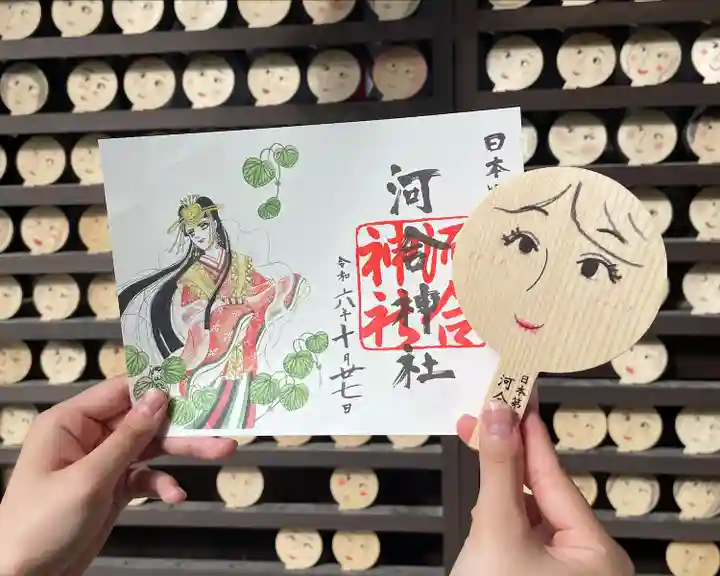 日本
河合神社
河合
神社
令和六年十月廿七日
日本第
河合